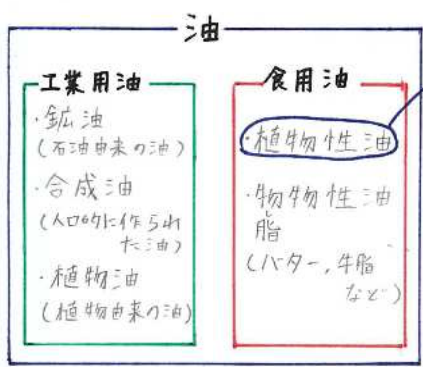 油
工業用油
・鉱油
(石油由来の油)
・合成油
(人口的に作られ
た油)
・植物油
(植物由来の油)
食用油
・植物性油
・物物性油
脂
(バター,牛脂
など)